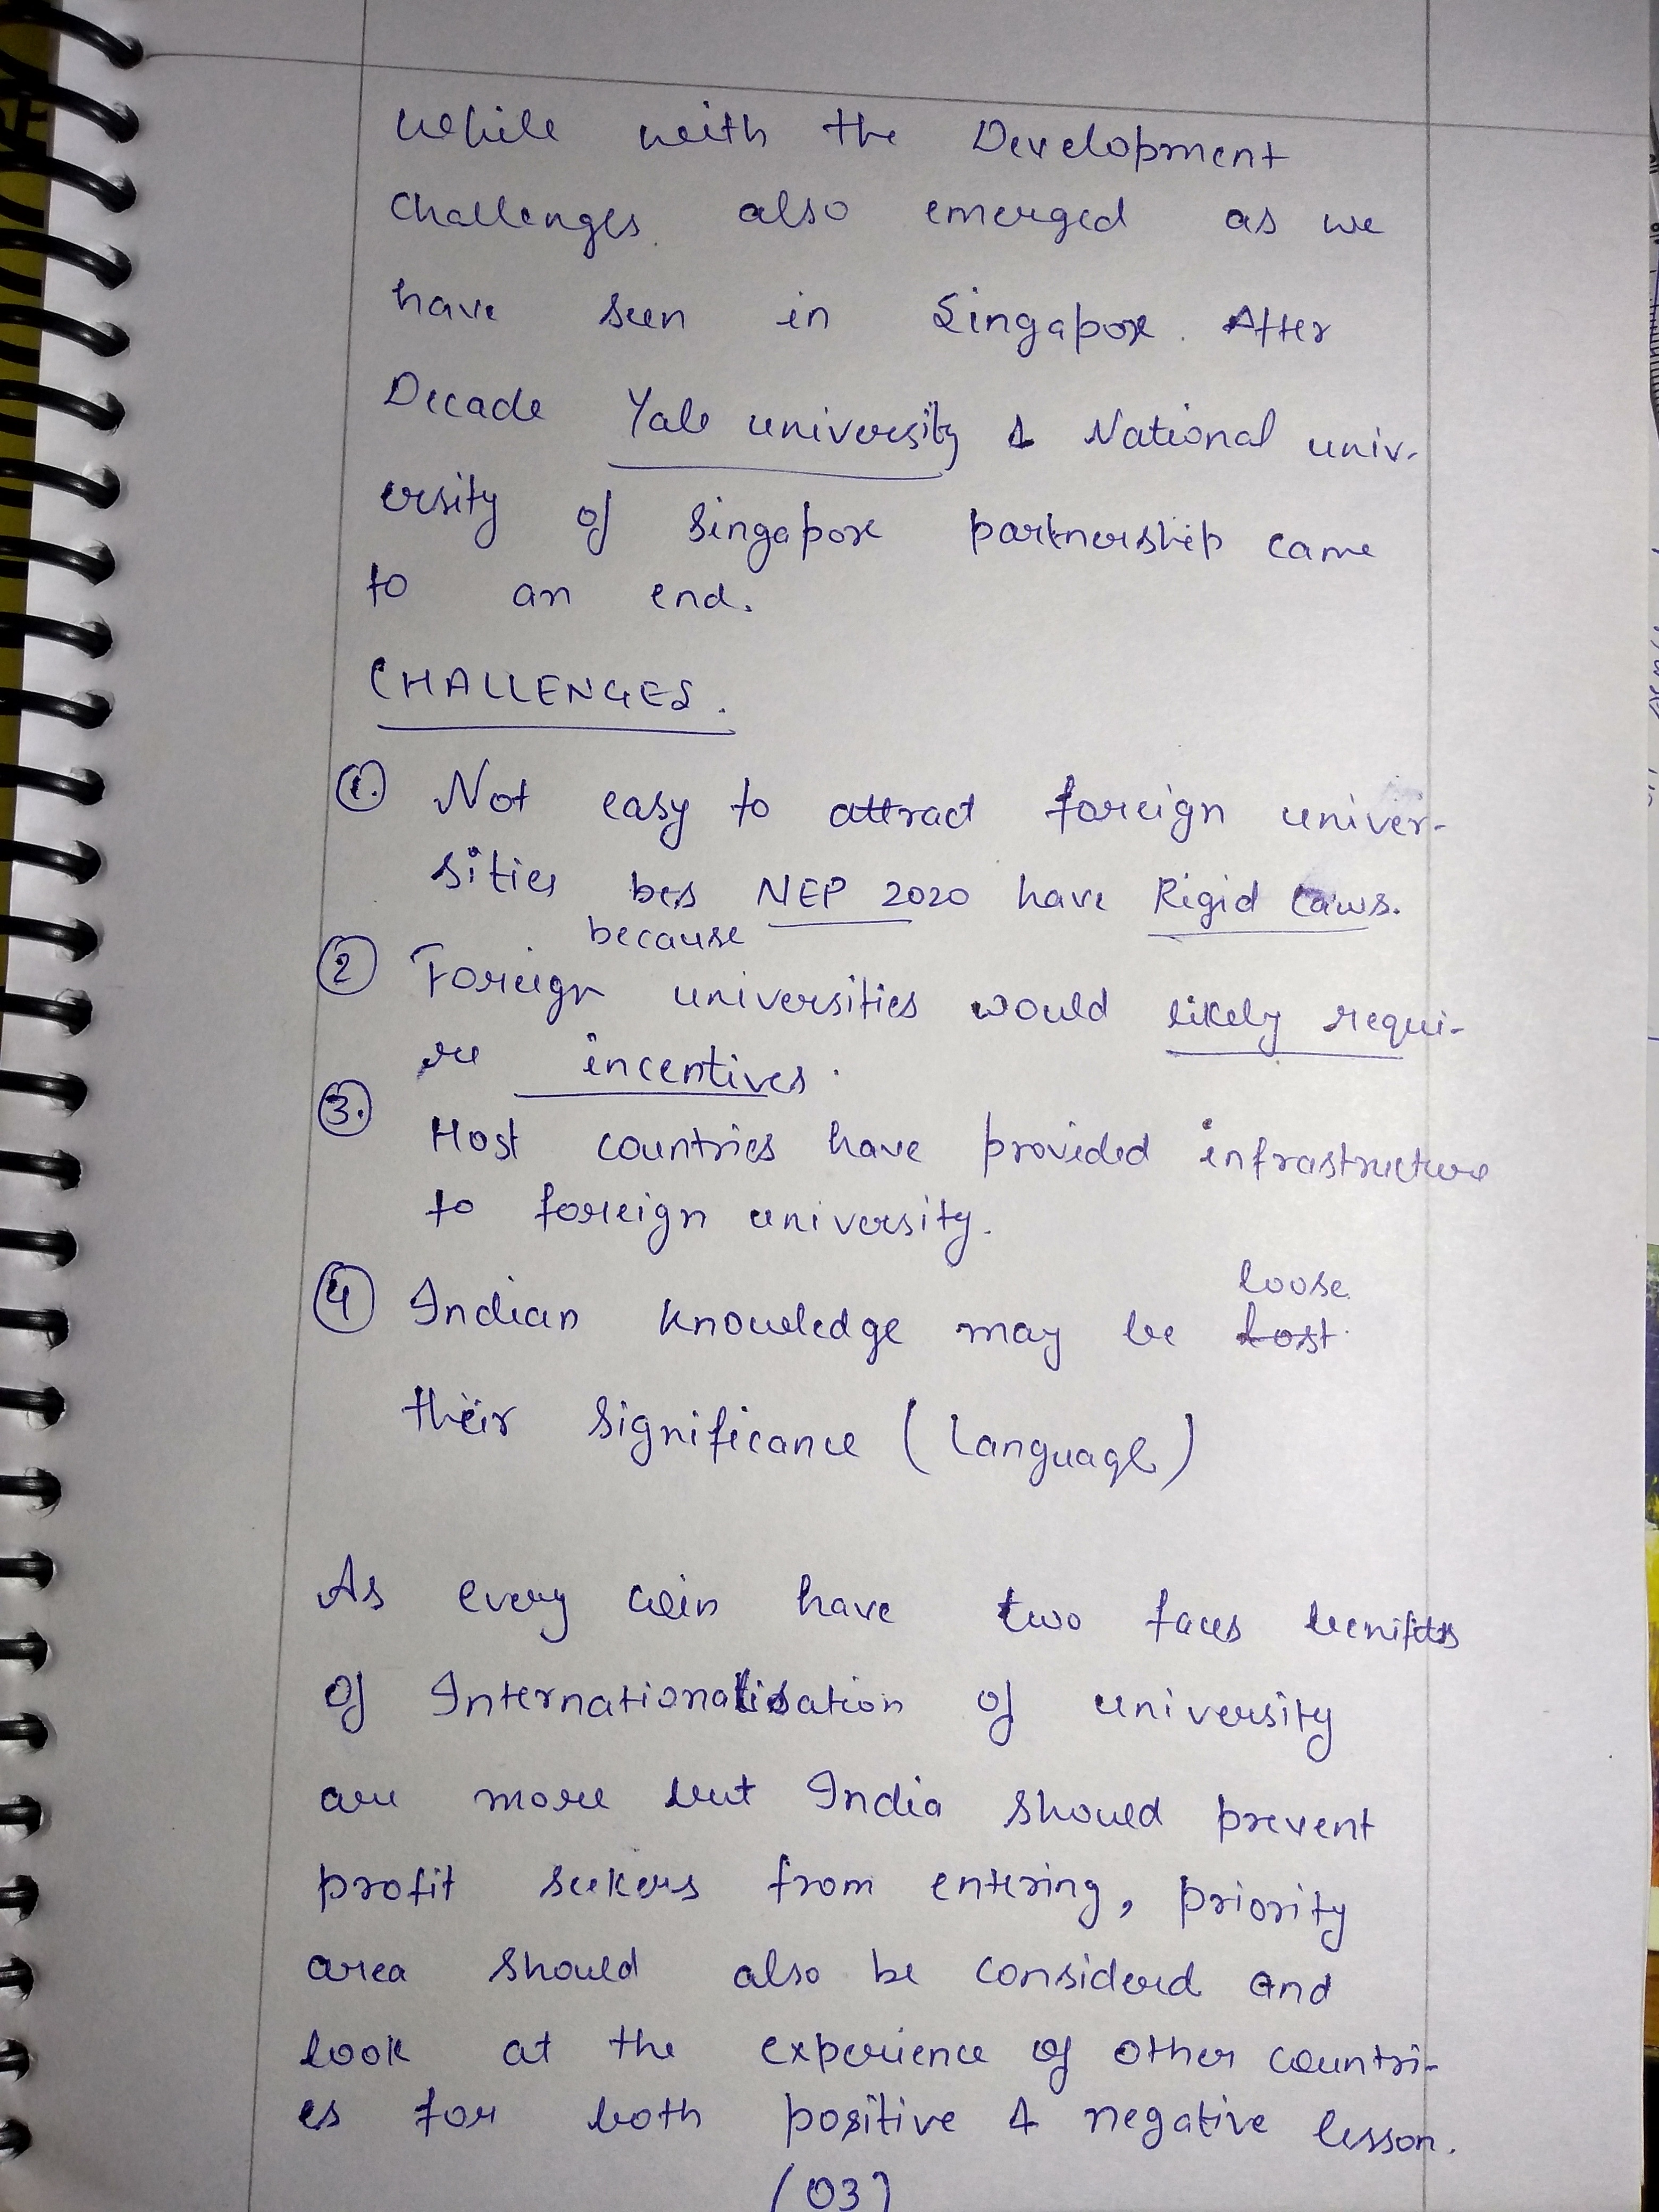 While with the Development
challenges also emerged as we
have seen in Singapore. After
Decade Yale university & National univ-
ersity of Singapore partnership came
to an end.
CHALLENGES.
1. Not easy to attract foreign univer-
sities bcs NEP 2020 have Rigid laws.
because
2 Foreign universities would likely requi-
re incentives.
3. Host countries have provided infrastructure
to foreign university.
loose
4 Indian knowledge may be lost
their significance (Language)
As every coin have two faces benifits
Of Internationalisation of university
are more but India should prevent
profit seekers from entering, priority
area should also be considerd and
look at the experience of other countri-
es for both positive & negative lesson.
(03)